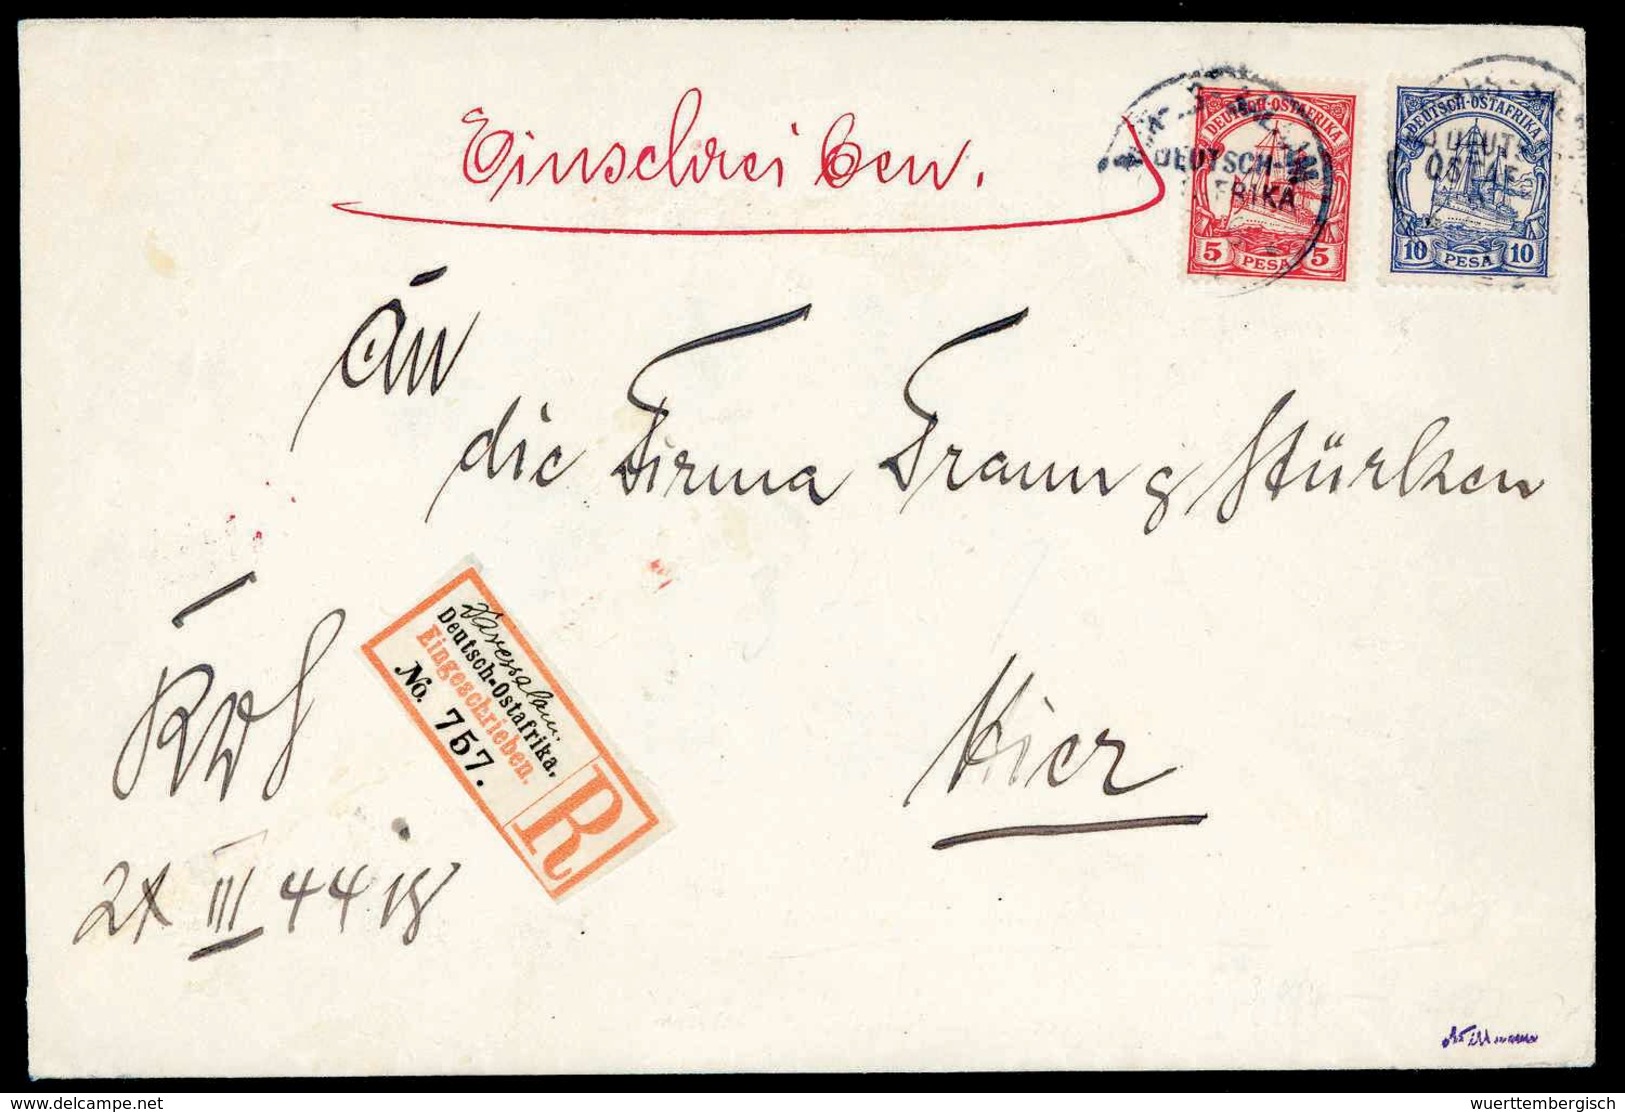 Einschreiben.
DEUTSCH-OSTAFRIKA
5 PESA 5
DEUTSCH-
AFRIKA
DEUTSCH-OSTAFRIKA
10 PESA 10
An
die Firma Traun & Stürken
Hier
Daressalam
Deutsch-Ostafrika.
Eingeschrieben.
No. 757.
R
III 44
delcampe.net
wuerttembergisch